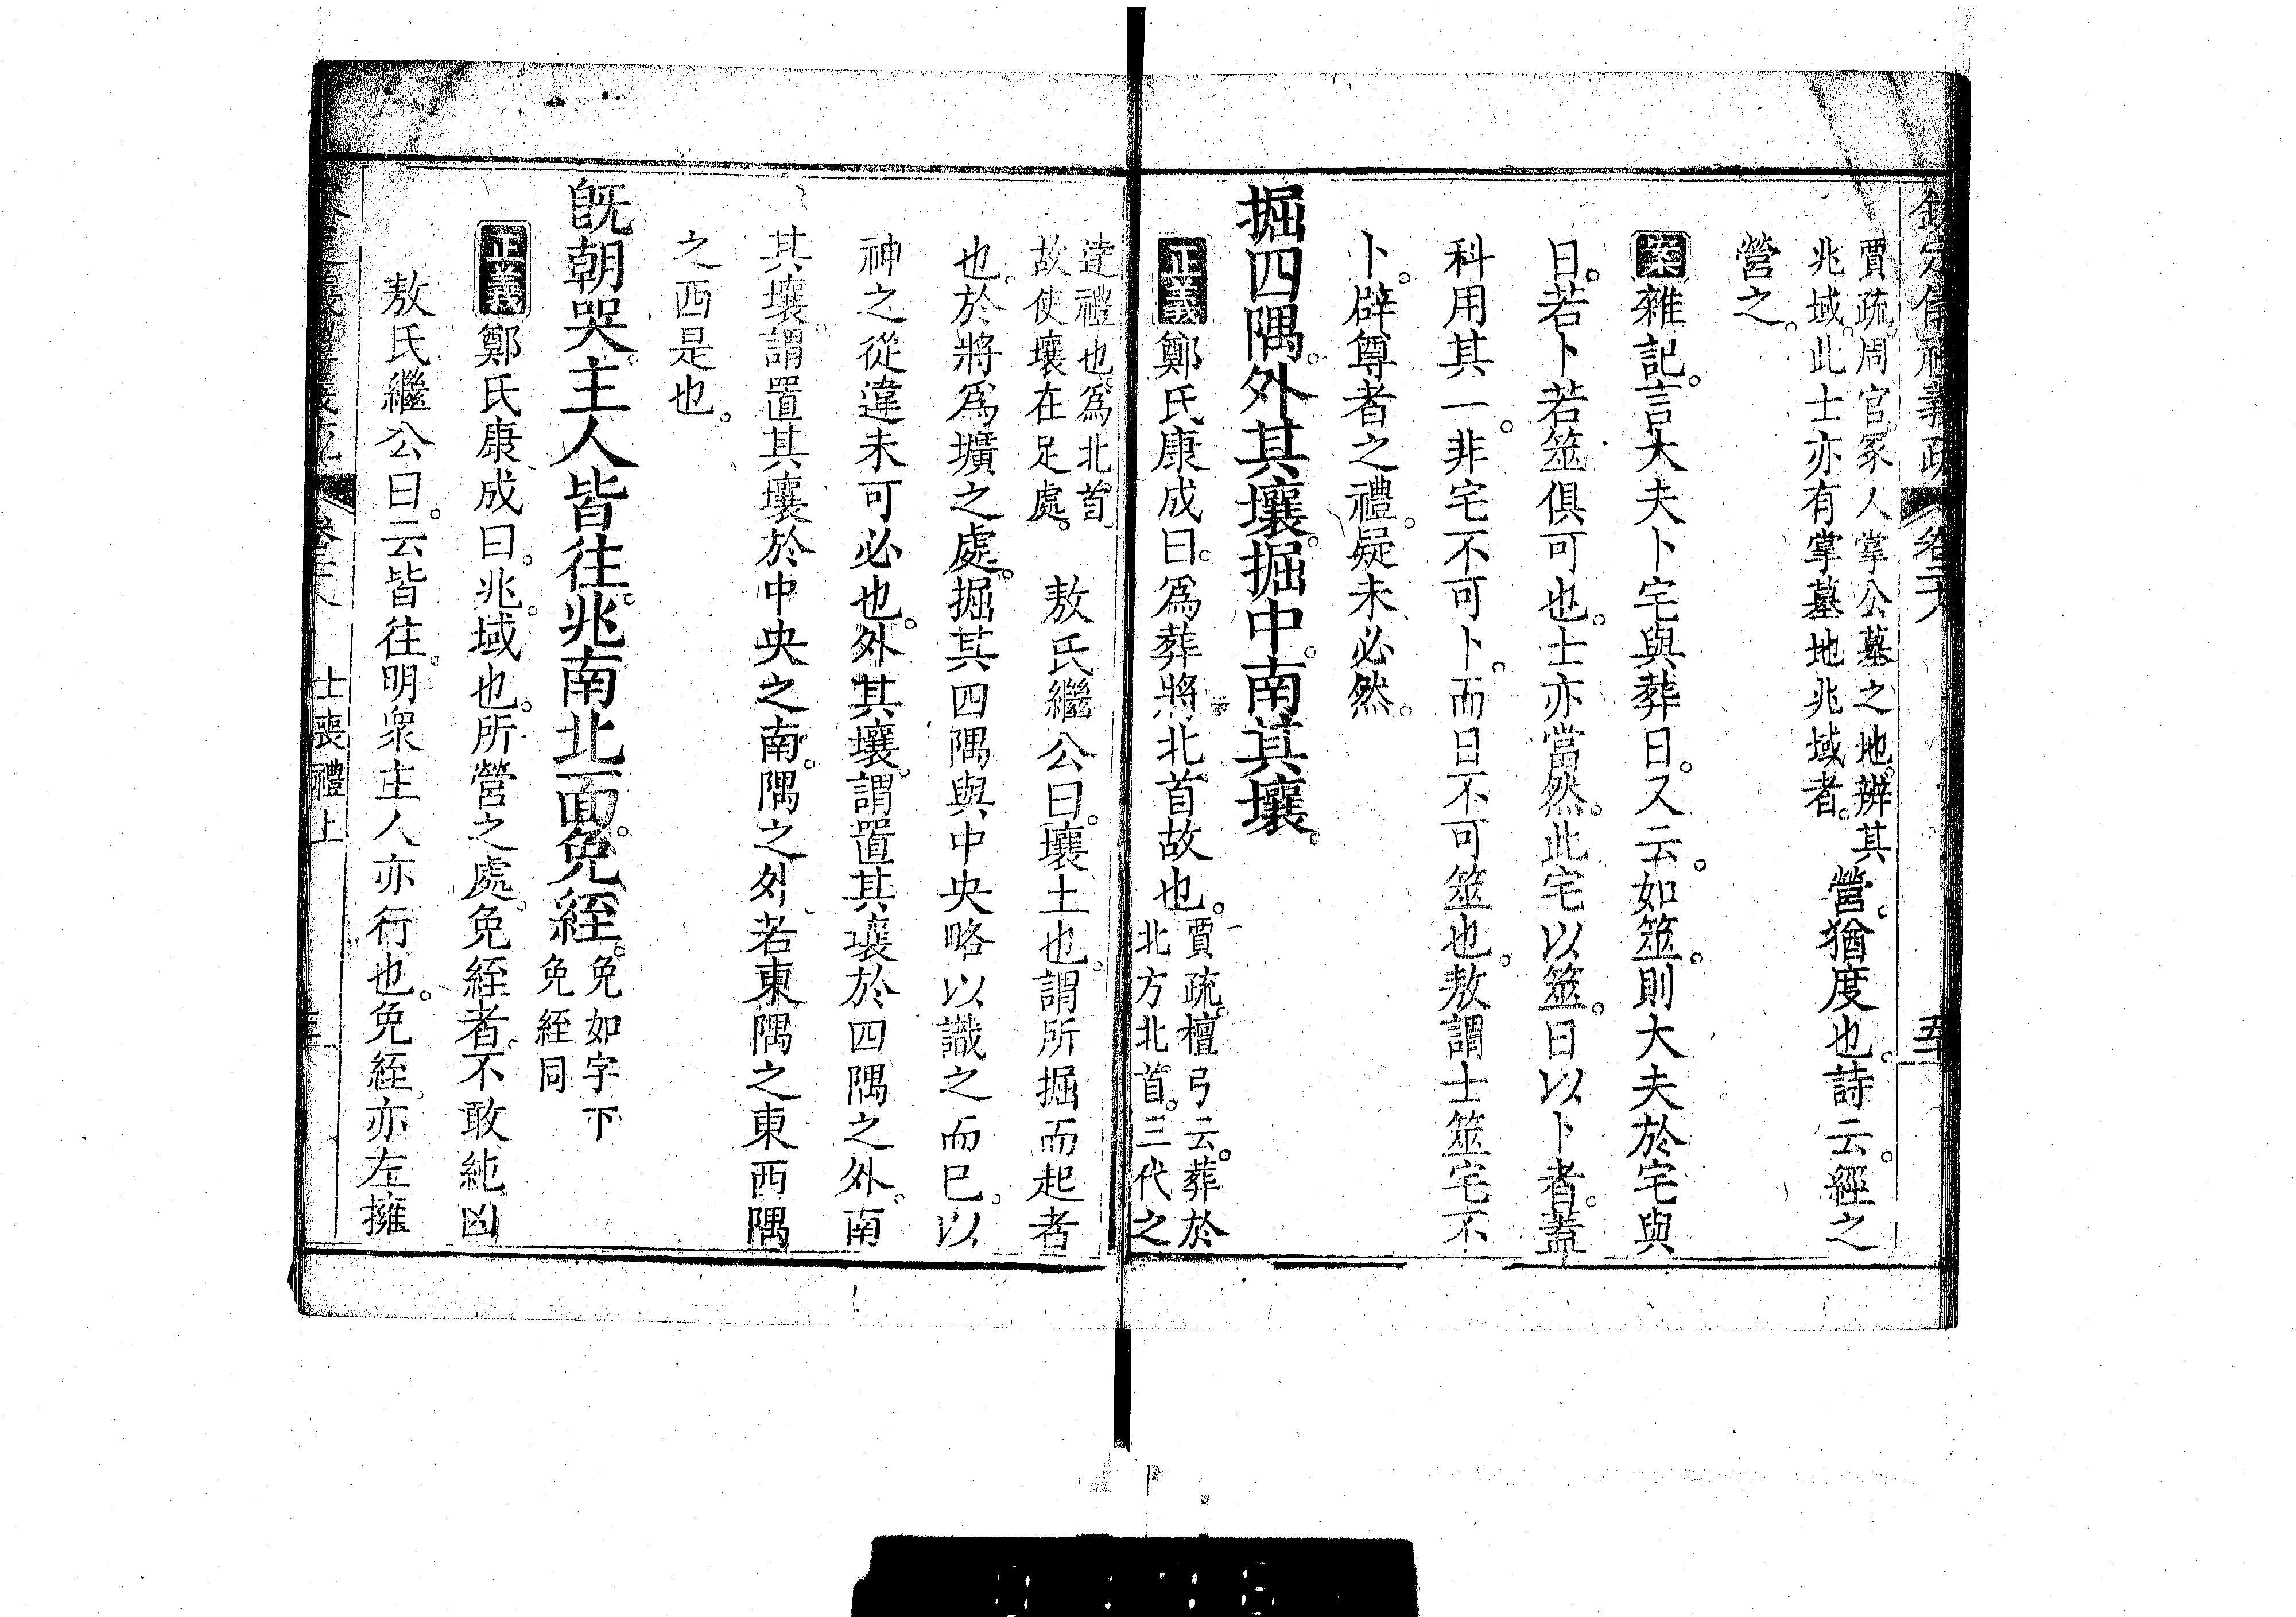 賈疏。周官。冢人掌公墓之地。辨其
兆域。此士亦有掌墓地兆域者。
營。猶度也。詩云。經之
營之。
案雜記。言大夫卜宅與葬日。又云。如筮。則大夫於宅與
日。若卜若筮俱可也。士亦當然。此宅以筮。日以卜者。蓋
科用其一。非宅不可卜。而日不可筮也。敖謂士筮宅不
卜。辟尊者之禮。疑未必然。
掘四隅。外其壤。掘中。南其壤。
正義鄭氏康成曰。爲葬將北首故也。
賈疏。檀弓云。葬於
北方北首。三代之
達禮也。爲北首
故使壤在足處。
敖氏繼公曰。壤土也。謂所掘而起者
也。於將爲壙之處。掘其四隅與中央略以識之而已。以
神之從違未可必也。外其壤。謂置其壤於四隅之外。南
其壤。謂置其壤於中央之南。隅之外。若東隅之東西隅
之西是也。
旣朝哭。主人皆往。兆南北面。免絰。
免如字下
免絰同
正義鄭氏康成曰。兆。域也。所營之處。免絰者。不敢純凶
敖氏繼公曰。云皆往。明衆主人亦行也。免絰。亦左擁
士喪禮上